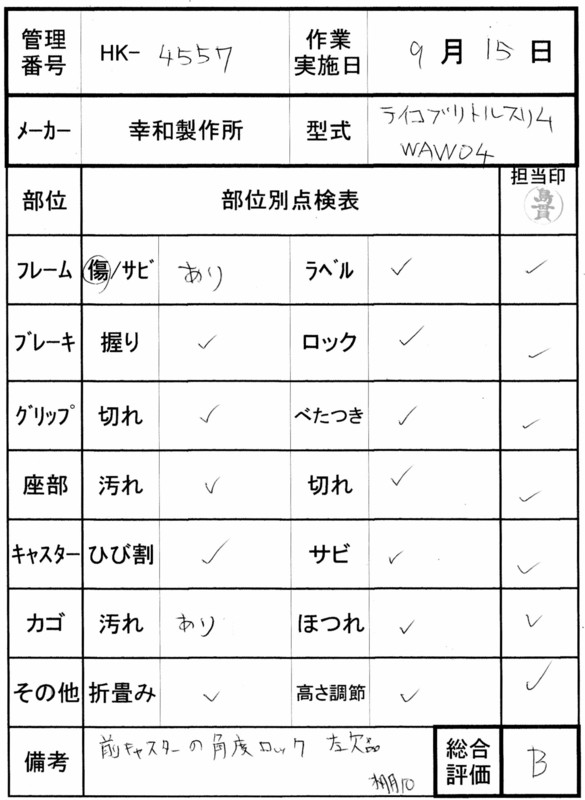 管理番号 HK- 4557 作業実施日 9月15日
メーカー 幸和製作所 型式 テイコブリトルスリム WAW04
部位 部位別点検表 担当印
フレーム 傷/サビ あり ラベル ✓ ✓
ブレーキ 握り ✓ ロック ✓ ✓
グリップ 切れ ✓ べたつき ✓ ✓
座部 汚れ ✓ 切れ ✓ ✓
キャスター ひび割 ✓ サビ ✓ ✓
カゴ 汚れ あり ほつれ ✓ ✓
その他 折畳み ✓ 高さ調節 ✓ ✓
備考 前キャスターの角度ロック 左欠品 総合評価 B